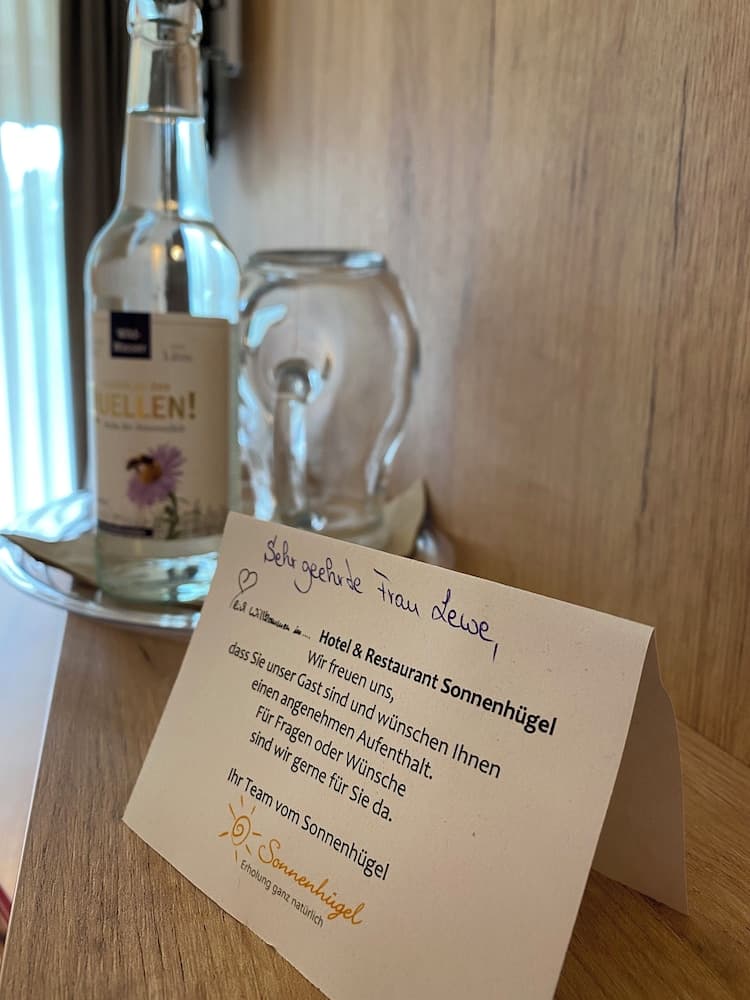 UELLEN!
Sehr geehrte Frau Lewe,
willkommen in...
Hotel & Restaurant Sonnenhügel
Wir freuen uns,
dass Sie unser Gast sind und wünschen Ihnen
einen angenehmen Aufenthalt.
Für Fragen oder Wünsche
sind wir gerne für Sie da.
Ihr Team vom Sonnenhügel
Sonnenhügel
Erholung ganz natürlich